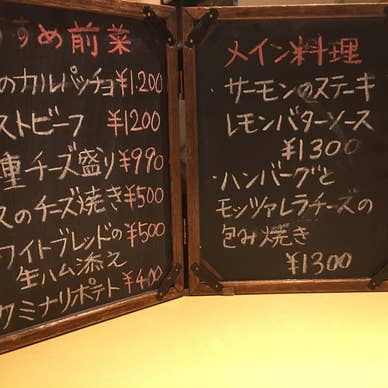 すすめ前菜
のカルパッチョ ¥1,200
ストビーフ ¥1200
種チーズ盛り ¥990
スのチーズ焼き ¥500
ワイトブレッドの ¥500
生ハム添え
クミナリポテト ¥400
メイン料理
サーモンのステーキ
レモンバターソース
¥1300
ハンバーグと
モッツァレラチーズの
包み焼き
¥1300